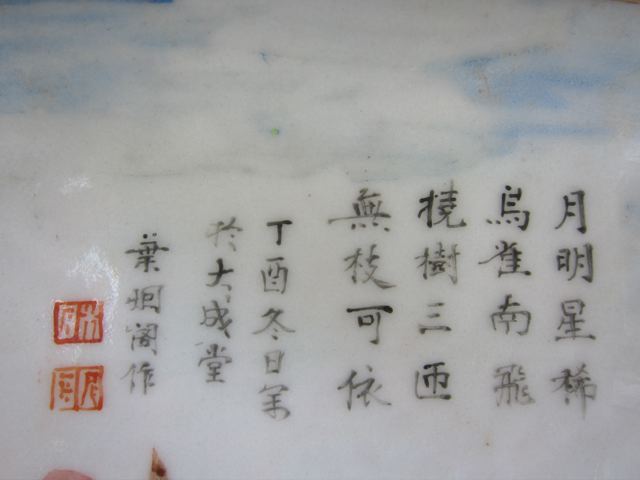 月明星稀
烏雀南飛
撓樹三匝
無枝可依
丁酉冬日案
於大成堂
葉炯閣作